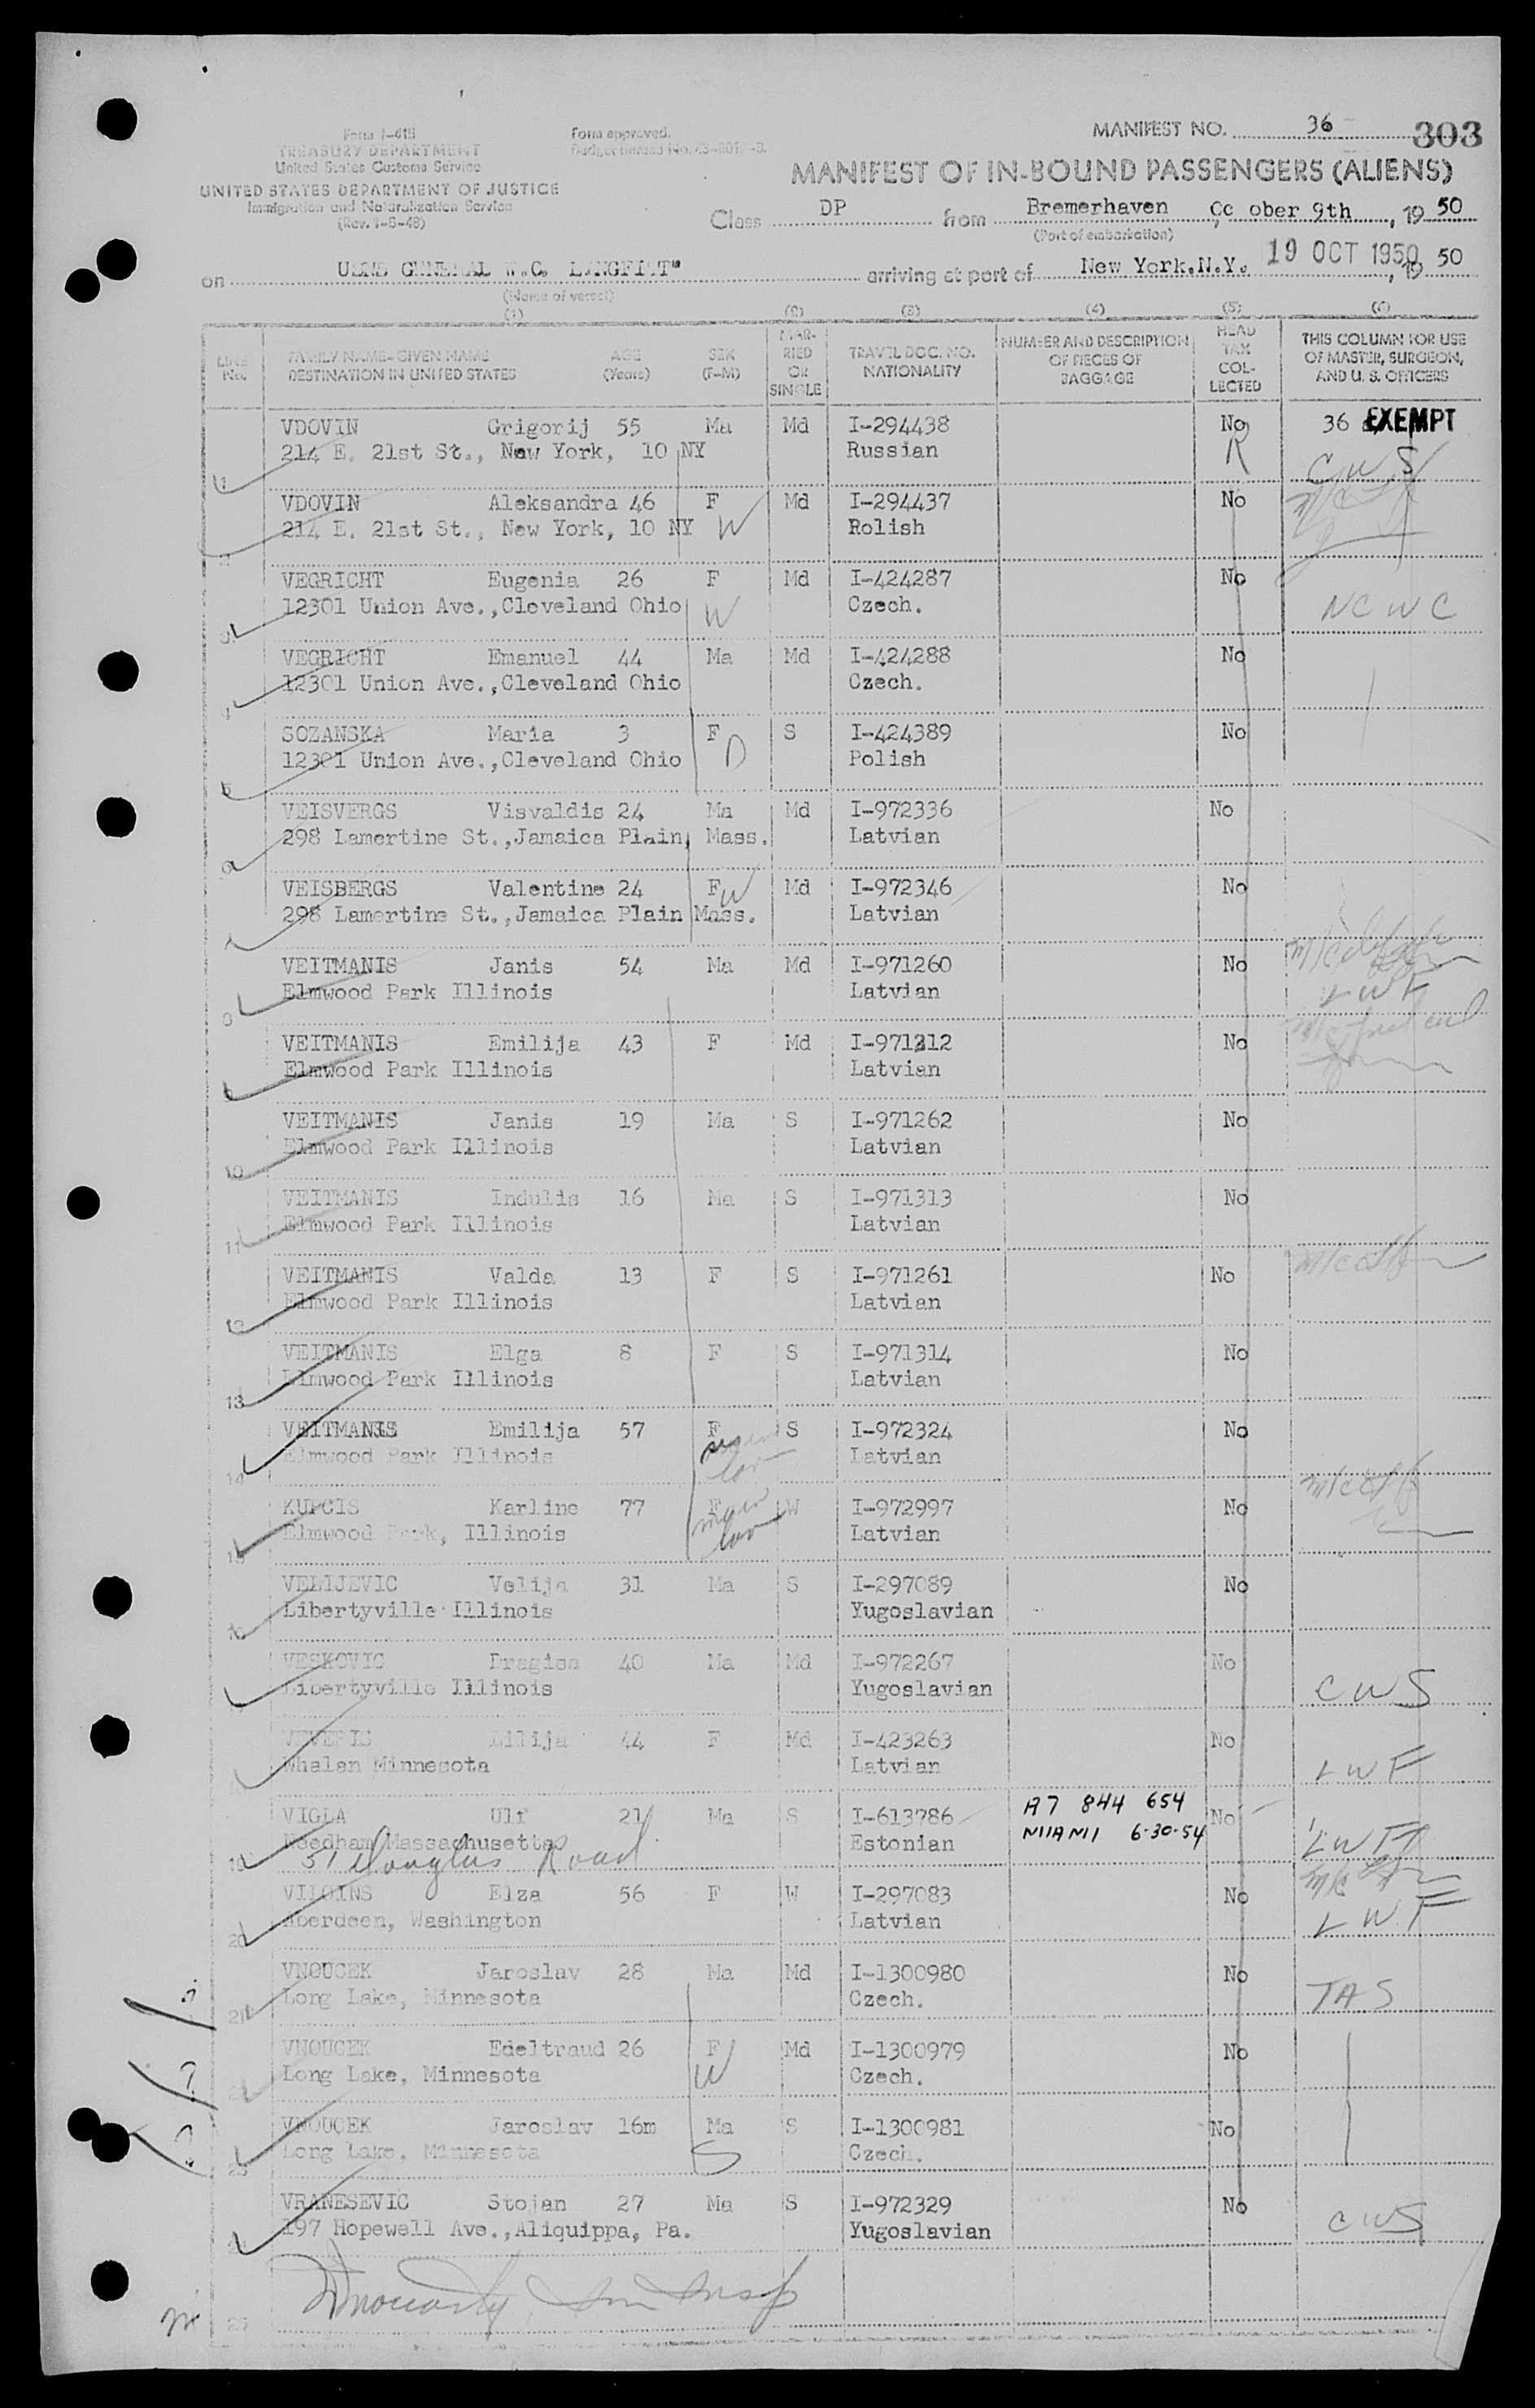 MANIFEST NO. 36 303
Form I-418
TREASURY DEPARTMENT
United States Customs Service
UNITED STATES DEPARTMENT OF JUSTICE
Immigration and Naturalization Service
(Rev. 1-5-48)
Form approved.
MANIFEST OF IN-BOUND PASSENGERS (ALIENS)
Class DP from Bremerhaven , Oc ober 9th , 19 50
(Port of embarkation)
on USNS GENERAL W.C. arriving at port of New York.N.Y. 19 OCT 1950 , 19 50
(Name of vessel)
(1) (2) (3) (4) (5) (6)
LINE No.
FAMILY NAME-GIVEN NAME AGE SEX
DESTINATION IN UNITED STATES (Years) (F-M)
MAR-RIED OR SINGLE
TRAVEL DOC. NO. NATIONALITY
NUMBER AND DESCRIPTION OF PIECES OF BAGGAGE
HEAD TAX COL-LECTED
THIS COLUMN FOR USE OF MASTER, SURGEON, AND U. S. OFFICERS
VDOVIN Grigorij 55 Ma Md I-294438 No 36 EXEMPT
1 214 E. 21st St., New York, 10 NY Russian R CWS
VDOVIN Aleksandra 46 F Md I-294437 No
214 E. 21st St., New York, 10 NY W Rolish
VEGRICHT Eugenia 26 F Md I-424287 No
3 12301 Union Ave.,Cleveland Ohio W Czech. NCWC
VEGRICHT Emanuel 44 Ma Md I-424288 No
4 12301 Union Ave.,Cleveland Ohio Czech.
SOZANSKA Maria 3 F S I-424389 No
5 12301 Union Ave.,Cleveland Ohio D Polish
VEISVERGS Visvaldis 24 Ma Md I-972336 No
6 298 Lamertine St.,Jamaica Plain, Mass. Latvian
VEISBERGS Valentine 24 F W Md I-972346 No
7 298 Lamertine St.,Jamaica Plain Mass. Latvian
VEITMANIS Janis 54 Ma Md I-971260 No
8 Elmwood Park Illinois Latvian LWF
VEITMANIS Emilija 43 F Md I-971212 No
9 Elmwood Park Illinois Latvian
VEITMANIS Janis 19 Ma S I-971262 No
10 Elmwood Park Illinois Latvian
VEITMANIS Indulis 16 Ma S I-971313 No
11 Elmwood Park Illinois Latvian
VEITMANIS Valda 13 F S I-971261 No
12 Elmwood Park Illinois Latvian
VEITMANIS Elga 8 F S I-971314 No
13 Elmwood Park Illinois Latvian
VEITMANIS Emilija 57 F S I-972324 No
14 Elmwood Park Illinois Latvian
KUPCIS Karline 77 F W I-972997 No
15 Elmwood Park, Illinois Latvian
VELIJEVIC Velija 31 Ma S I-297089 No
16 Libertyville Illinois Yugoslavian
VESKOVIC Dragisa 40 Ma Md I-972267 No
Libertyville Illinois Yugoslavian CWS
VEVERIS Lilija 44 F Md I-423263 No
Whalen Minnesota Latvian LWF
VIGLA Ulf 21 Ma S I-613786 A7 844 654 No
19 Needham Massachusetts Estonian N11AN11 6-30-54 LWF
51 Douglas Road
VILCINS Elza 56 F W I-297083 No
20 Aberdeen, Washington Latvian LWF
VNOUCEK Jaroslav 28 Ma Md I-1300980 No
21 Long Lake, Minnesota Czech. TAS
VNOUCEK Edeltraud 26 F Md I-1300979 No
Long Lake, Minnesota W Czech.
VNOUCEK Jaroslav 16m Ma S I-1300981 No
23 Long Lake, Minnesota S Czech.
VRANESEVIC Stojan 27 Ma S I-972329 No
197 Hopewell Ave.,Aliquippa, Pa. Yugoslavian CWS